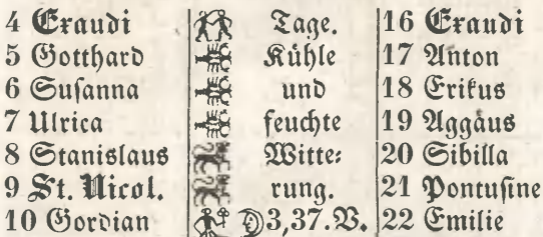 4 Exaudi Tage. 16 Exaudi
5 Gotthard Kühle 17 Anton
6 Susanna und 18 Erikus
7 Ulrica feuchte 19 Aggäus
8 Stanislaus Witte: 20 Sibilla
9 St. Nicol. rung. 21 Pontusine
10 Gordian 3,37. V. 22 Emilie